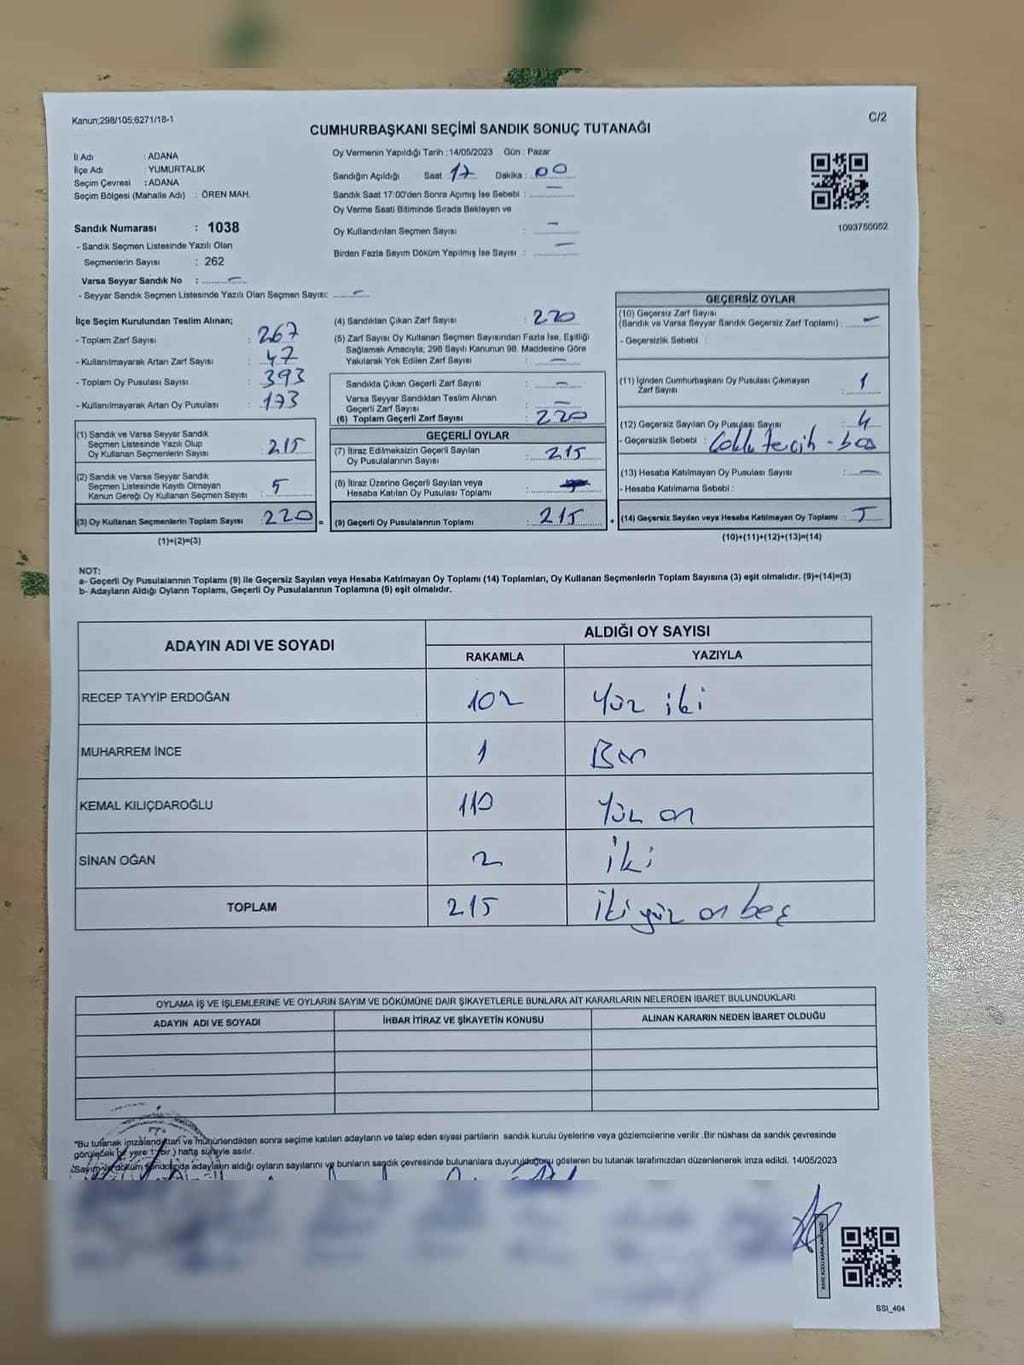 Kanun;298/105;6271/18-1
C/2
CUMHURBAŞKANI SEÇİMİ SANDIK SONUÇ TUTANAĞI
İl Adı : ADANA
İlçe Adı : YUMURTALIK
Seçim Çevresi : ADANA
Seçim Bölgesi (Mahalle Adı) : ÖREN MAH.
Sandık Numarası : 1038
- Sandık Seçmen Listesinde Yazılı Olan
Seçmenlerin Sayısı : 262
Varsa Seyyar Sandık No : -
- Seyyar Sandık Seçmen Listesinde Yazılı Olan Seçmen Sayısı: -
Oy Vermenin Yapıldığı Tarih : 14/05/2023 Gün : Pazar
Sandığın Açıldığı Saat 17 Dakika : 00
Sandık Saat 17:00'den Sonra Açımış İse Sebebi : -
Oy Verme Saati Bitiminde Sırada Bekleyen ve
Oy Kullandırılan Seçmen Sayısı : -
Birden Fazla Sayım Döküm Yapılmış İse Sayısı : -
1093750052
İlçe Seçim Kurulundan Teslim Alınan;
- Toplam Zarf Sayısı : 267
- Kullanılmayarak Artan Zarf Sayısı : 47
- Toplam Oy Pusulası Sayısı : 393
- Kullanılmayarak Artan Oy Pusulası : 173
(1) Sandık ve Varsa Seyyar Sandık
Seçmen Listesinde Yazılı Olup
Oy Kullanan Seçmenlerin Sayısı : 215
(2) Sandık ve Varsa Seyyar Sandık
Seçmen Listesinde Kayıtlı Olmayan
Kanun Gereği Oy Kullanan Seçmen Sayısı : 5
(3) Oy Kullanan Seçmenlerin Toplam Sayısı : 220 =
(1)+(2)=(3)
(4) Sandıktan Çıkan Zarf Sayısı : 220
(5) Zarf Sayısı Oy Kullanan Seçmen Sayısından Fazla İse, Eşitliği
Sağlamak Amacıyla; 298 Sayılı Kanunun 98. Maddesine Göre
Yakılarak Yok Edilen Zarf Sayısı : -
Sandıkta Çıkan Geçerli Zarf Sayısı : -
Varsa Seyyar Sandıktan Teslim Alınan
Geçerli Zarf Sayısı : -
(6) Toplam Geçerli Zarf Sayısı : 220
GEÇERLİ OYLAR
(7) İtiraz Edilmeksizin Geçerli Sayılan
Oy Pusulalarının Sayısı : 215
(8) İtiraz Üzerine Geçerli Sayılan veya
Hesaba Katılan Oy Pusulası Toplamı :
(9) Geçerli Oy Pusulalarının Toplamı : 215 +
GEÇERSİZ OYLAR
(10) Geçersiz Zarf Sayısı
(Sandık ve Varsa Seyyar Sandık Geçersiz Zarf Toplamı) : -
- Geçersizlik Sebebi :
(11) İçinden Cumhurbaşkanı Oy Pusulası Çıkmayan
Zarf Sayısı : 1
(12) Geçersiz Sayılan Oy Pusulası Sayısı : 4
- Geçersizlik Sebebi : Çoklu tercih - boş
(13) Hesaba Katılmayan Oy Pusulası Sayısı : -
- Hesaba Katılmama Sebebi :
(14) Geçersiz Sayılan veya Hesaba Katılmayan Oy Toplamı : 5
(10)+(11)+(12)+(13)=(14)
NOT:
a- Geçerli Oy Pusulalarının Toplamı (9) ile Geçersiz Sayılan veya Hesaba Katılmayan Oy Toplamı (14) Toplamları, Oy Kullanan Seçmenlerin Toplam Sayısına (3) eşit olmalıdır. (9)+(14)=(3)
b- Adayların Aldığı Oyların Toplamı, Geçerli Oy Pusulalarının Toplamına (9) eşit olmalıdır.
ADAYIN ADI VE SOYADI
ALDIĞI OY SAYISI
RAKAMLA YAZIYLA
RECEP TAYYİP ERDOĞAN 102 Yüz iki
MUHARREM İNCE 1 Bir
KEMAL KILIÇDAROĞLU 110 Yüz on
SİNAN OĞAN 2 İki
TOPLAM 215 İki yüz on beş
OYLAMA İŞ VE İŞLEMLERİNE VE OYLARIN SAYIM VE DÖKÜMÜNE DAİR ŞİKAYETLERLE BUNLARA AİT KARARLARIN NELERDEN İBARET BULUNDUKLARI
ADAYIN ADI VE SOYADI İHBAR İTİRAZ VE ŞİKAYETİN KONUSU ALINAN KARARIN NEDEN İBARET OLDUĞU
*Bu tutanak imzalandıktan ve mühürlendikten sonra seçime katılan adayların ve talep eden siyasi partilerin sandık kurulu üyelerine veya gözlemcilerine verilir .Bir nüshası da sandık çevresinde
görülecek bir yere 1 (bir ) hafta süreyle asılır.
*Sayım ve döküm sonucunda adayların aldığı oyların sayılarını ve bunların sandık çevresinde bulunanlara duyurulduğunu gösteren bu tutanak tarafımızdan düzenlenerek imza edildi. 14/05/2023
SSI_404